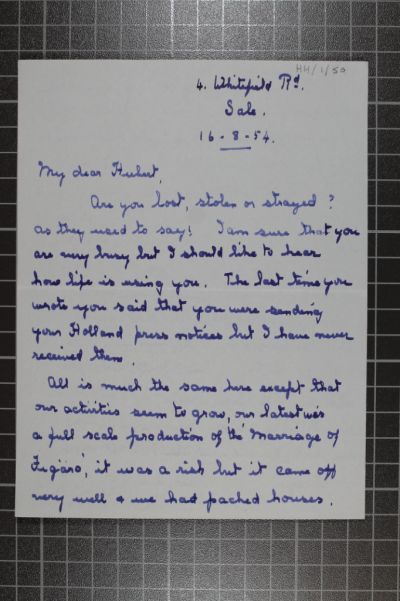 HH/1/50
4. Whitefield Rd.
Sale.
16-8-54.
My dear Hubert,
Are you lost, stolen or strayed?
as they used to say! I am sure that you
are very busy but I should like to hear
how life is using you. The last time you
wrote you said that you were sending
your Holland press notices but I have never
received them.
All is much the same here except that
our activities seem to grow, our latest was
a full scale production of the 'Marriage of
Figaro', it was a risk but it came off
very well & we had packed houses.